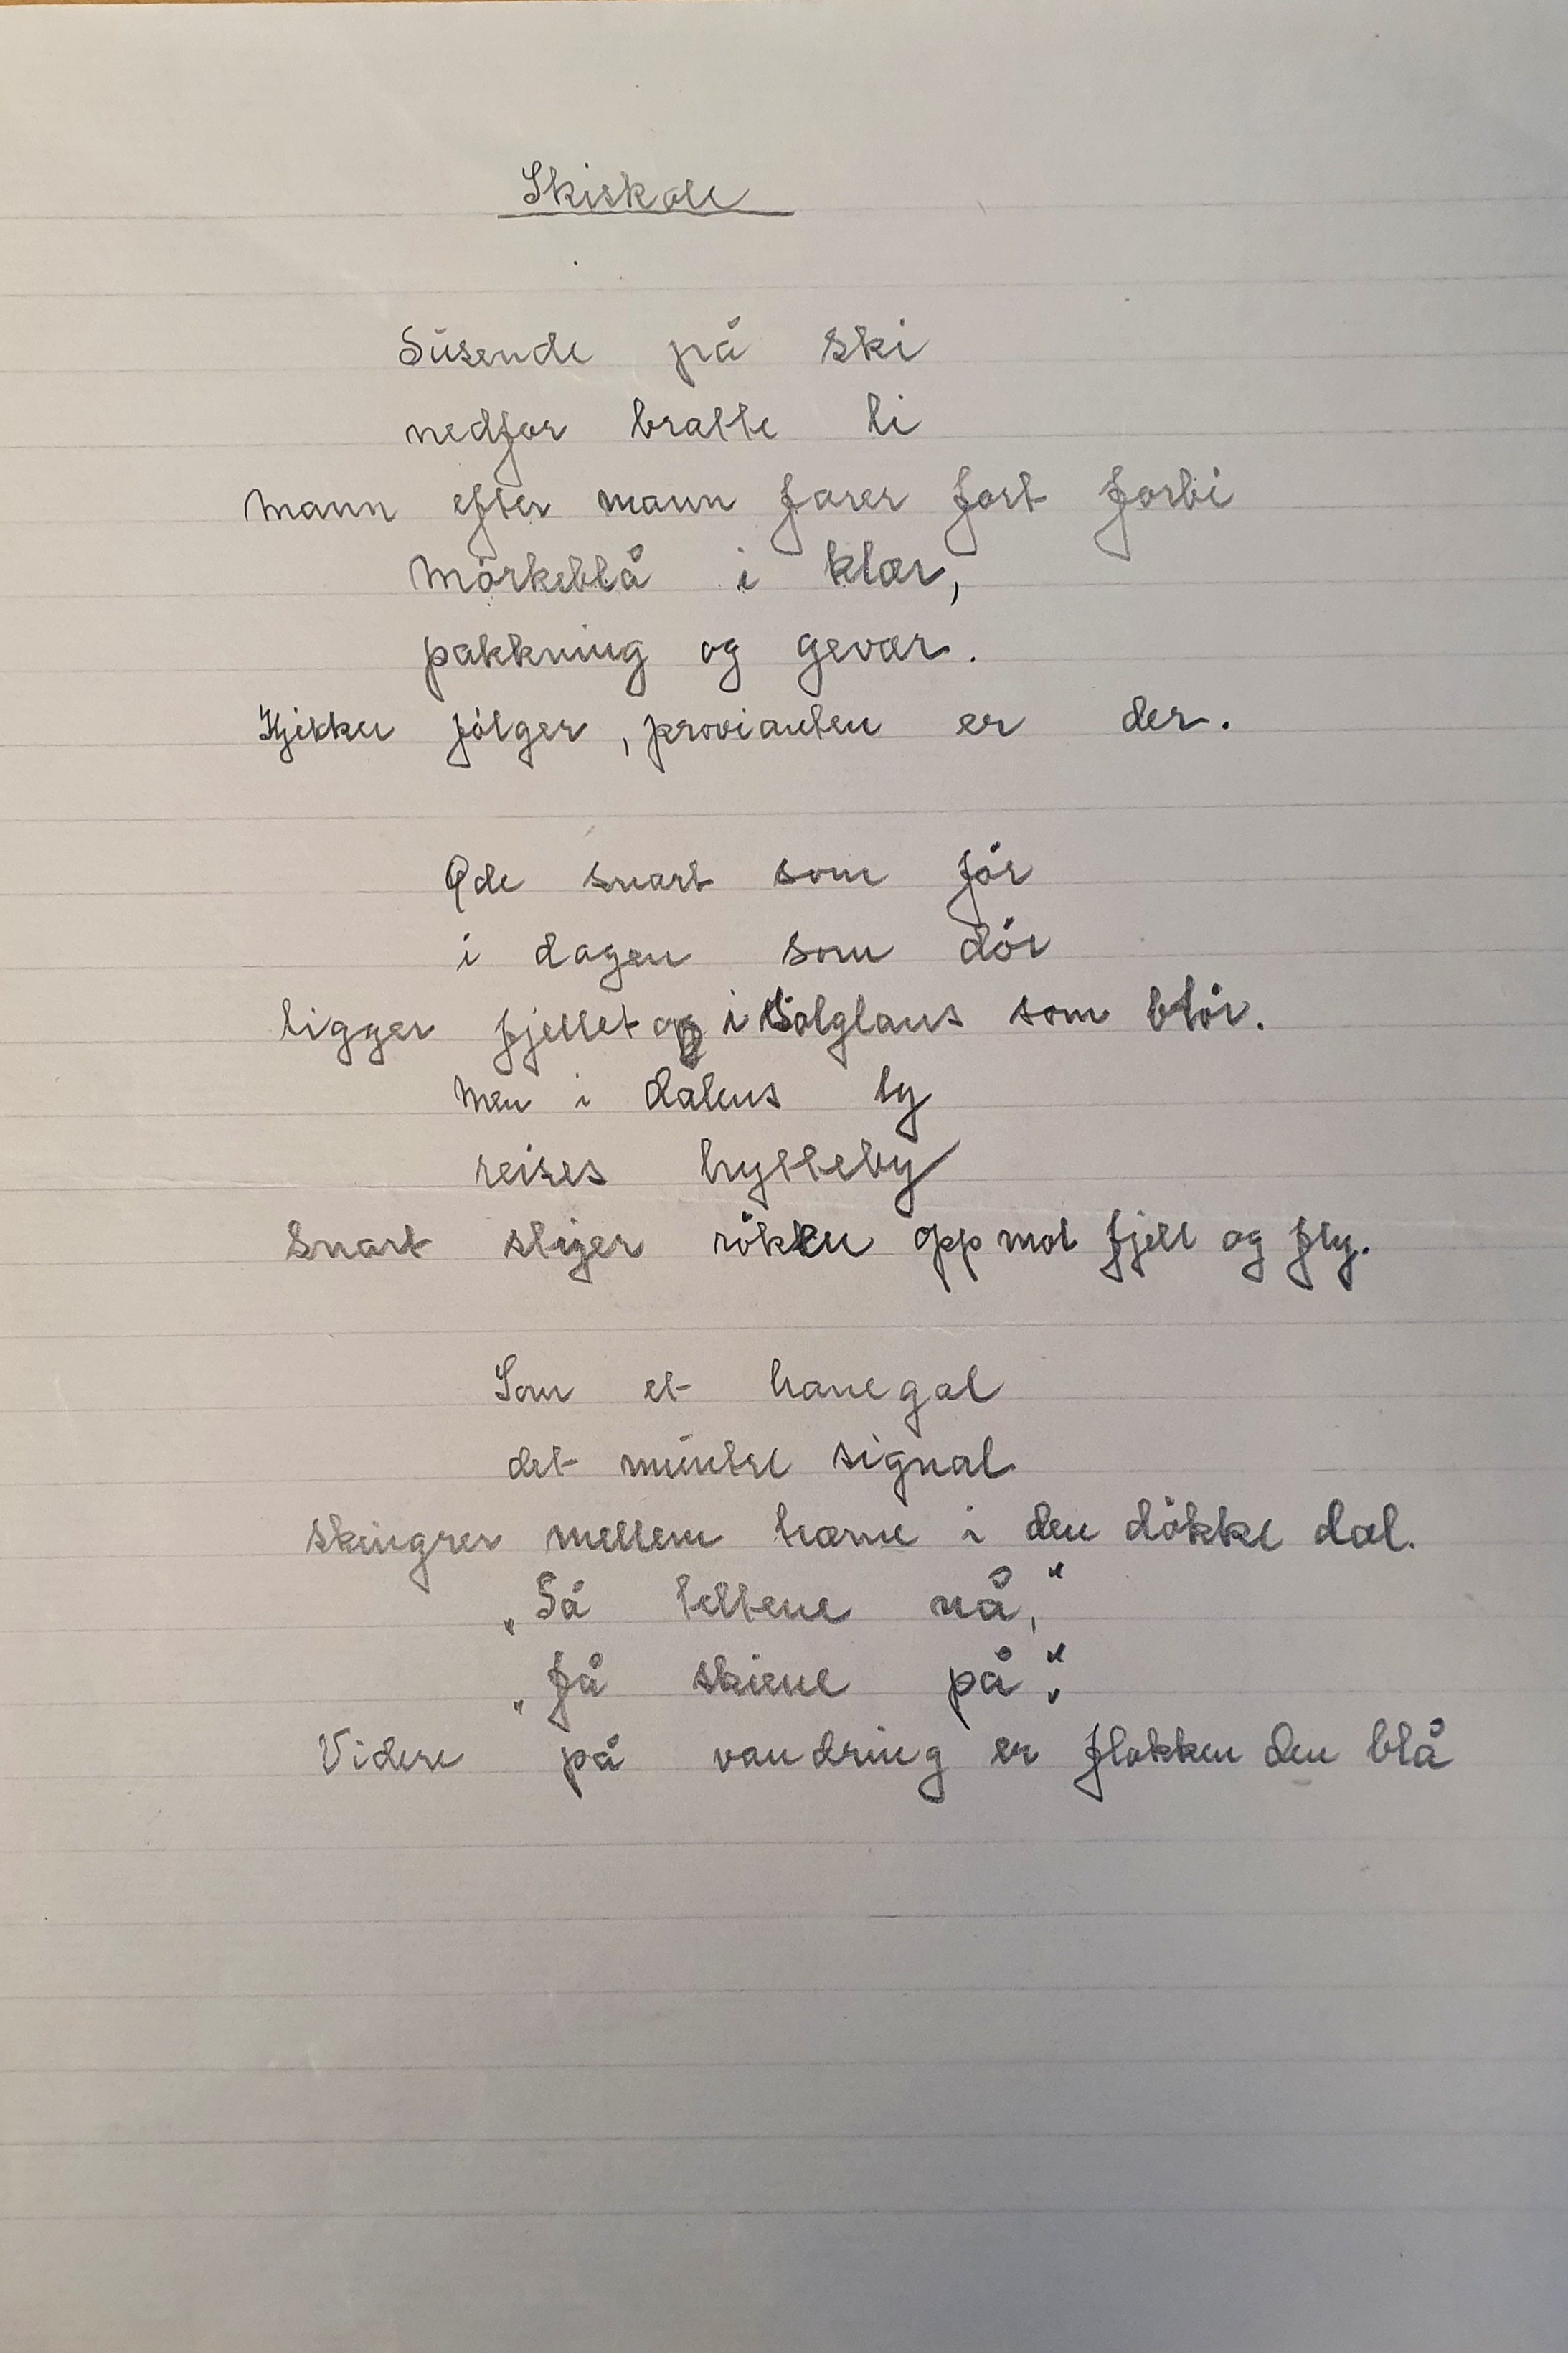 Skiskole
Süsende på ski
nedfor bratte li
Mann efter mann farer fort forbi
Mörkeblå i klær,
pakkning og gevær.
Kjökken fölger, provianten er der.
Øde snart som för
i dagen som dör
ligger fjellet i Solglans som blör.
Men i dalens ly
reises hytteby
Snart stiger röken opp mot fjell og fly.
Som et hanegal
det muntre signal
skingrer mellem trærne i den dökke dal.
„Så teltene nå,"
„Få skiene på".
Videre på vandring er flokken den blå